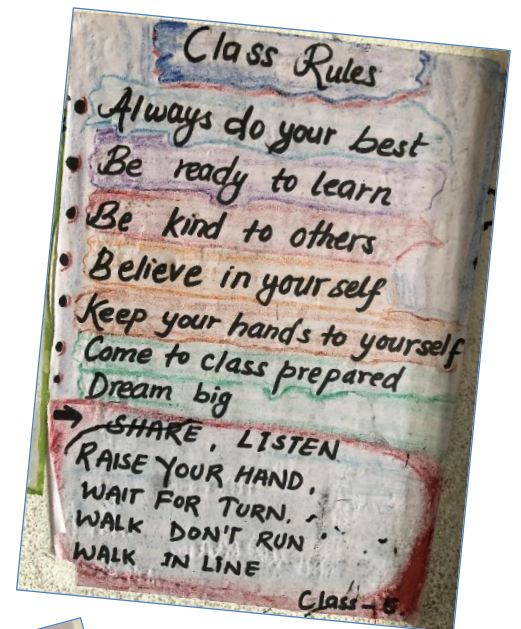 Class Rules
• Always do your best
• Be ready to learn
• Be kind to others
• Believe in yourself
• Keep your hands to yourself
• Come to class prepared
• Dream big
→ SHARE, LISTEN
RAISE YOUR HAND,
WAIT FOR TURN.
WALK DON'T RUN
WALK IN LINE
Class - 5.